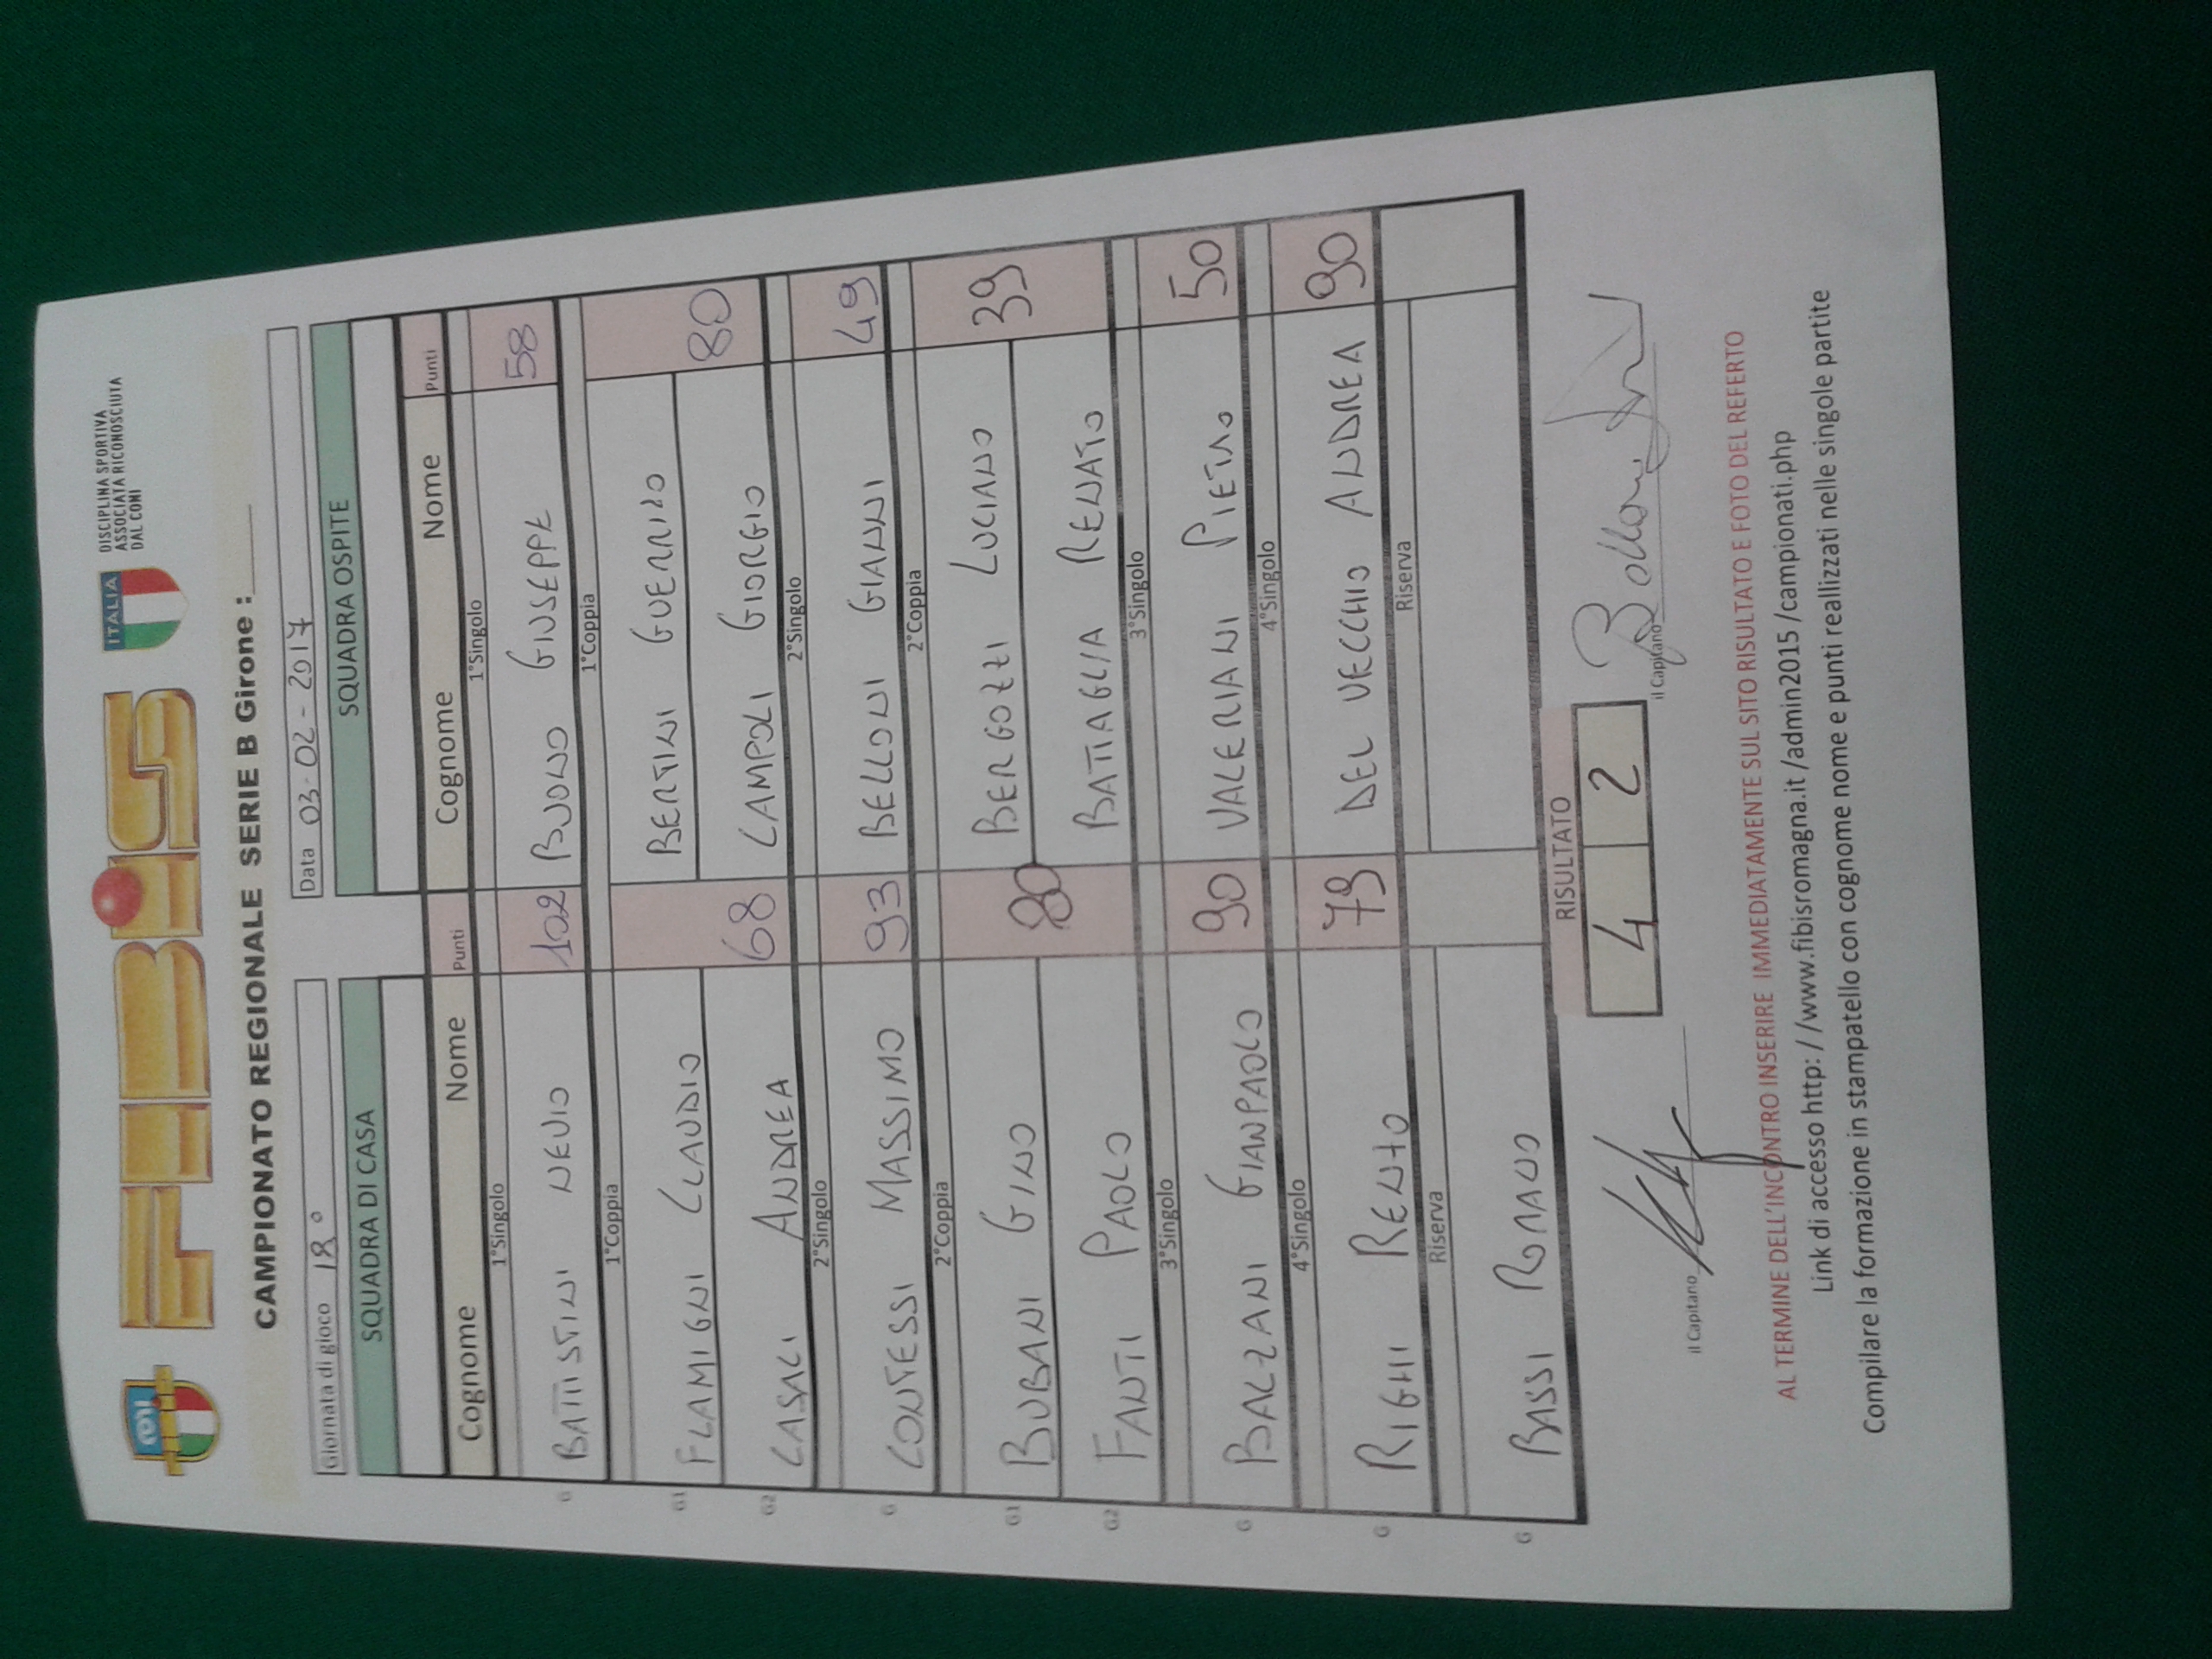 CONI
FIBiS
ITALIA
DISCIPLINA SPORTIVA
ASSOCIATA RICONOSCIUTA
DAL CONI
CAMPIONATO REGIONALE SERIE B Girone :
Giornata di gioco 18°
Data 03-02-2017
SQUADRA DI CASA
SQUADRA OSPITE
Cognome Nome Punti Cognome Nome Punti
1°Singolo 1°Singolo
G BATTISTINI NEVIO 102 BUONO GIUSEPPE 58
1°Coppia 1°Coppia
G1 FLAMIGNI CLAUDIO BERTINI GUERRINO
G2 CASALI ANDREA 68 CAMPOLI GIORGIO 80
2°Singolo 2°Singolo
G CONTESSI MASSIMO 93 BELLONI GIANNI 49
2°Coppia 2°Coppia
G1 BUBANI GINO 80 BERGOZZI LUCIANO 39
G2 FANTI PAOLO BATTAGLIA RENATO
3°Singolo 3°Singolo
G BALZANI GIANPAOLO 90 VALERIANI PIETRO 50
4°Singolo 4°Singolo
G RIGHI RENTO 79 DEL VECCHIO ANDREA 90
Riserva Riserva
G BASSI ROMANO
RISULTATO
4 2
il Capitano il Capitano
AL TERMINE DELL'INCONTRO INSERIRE IMMEDIATAMENTE SUL SITO RISULTATO E FOTO DEL REFERTO
Link di accesso http: / /www.fibisromagna.it /admin2015 /campionati.php
Compilare la formazione in stampatello con cognome nome e punti reallizzati nelle singole partite